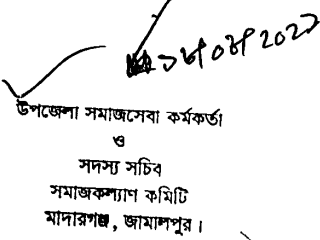 উপজেলা সমাজসেবা কর্মকর্তা
ও
সদস্য সচিব
সমাজকল্যাণ কমিটি
মাদারগঞ্জ, জামালপুর।